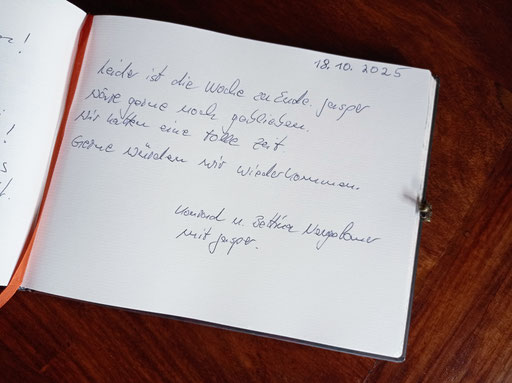 !
!
18.10.2025
Leider ist die Woche zu Ende. Jasper
wäre gerne noch geblieben.
Wir hatten eine tolle Zeit
Gerne würden wir wiederkommen.
Konrad u. Bettina
mit Jasper.